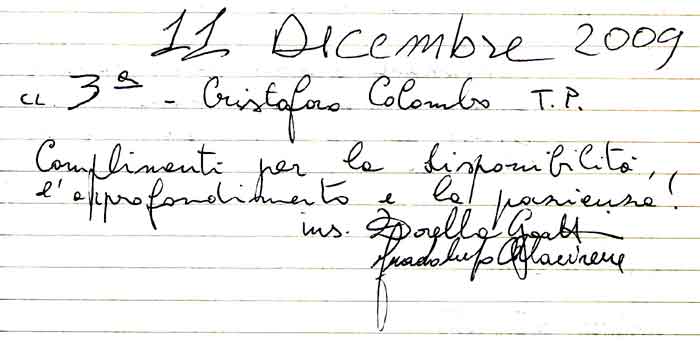 11 Dicembre 2009
cl 3ª - Cristoforo Colombo T.P.
Complimenti per la disponibilità,
l'approfondimento e la pazienza!
ins.